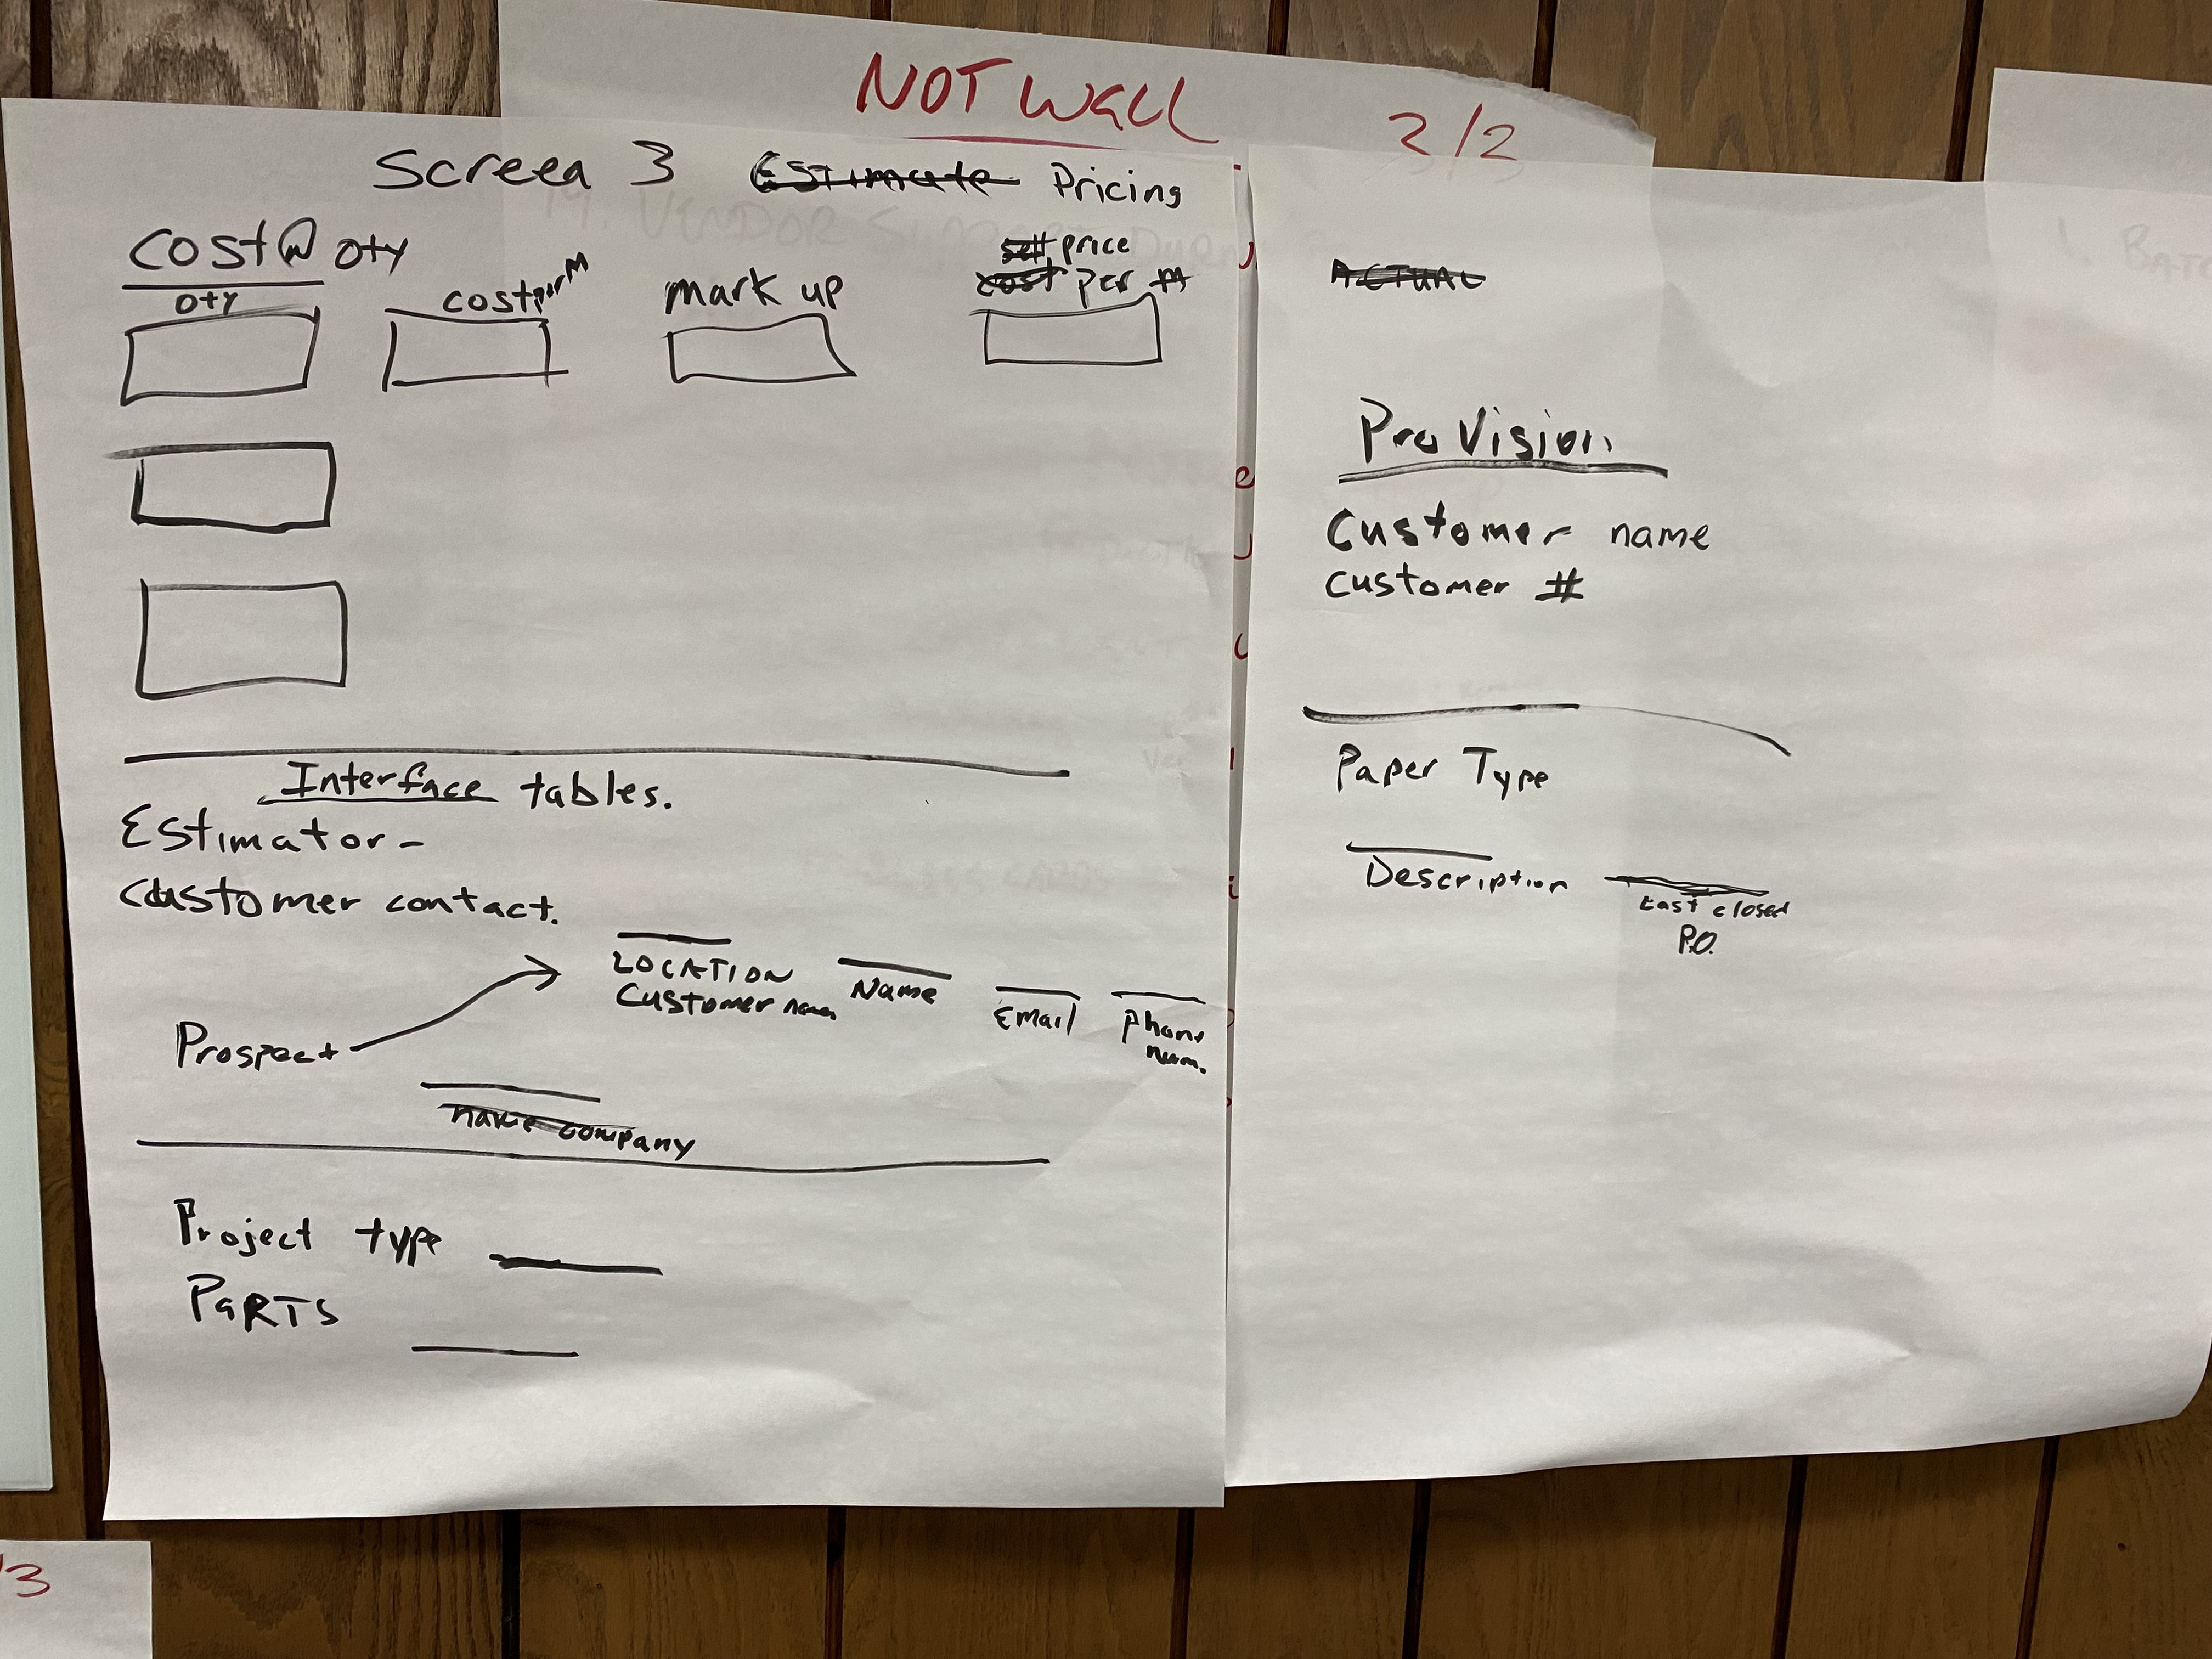 NOT Wall
Screen 3 Estimate Pricing
Cost @ Qty
Qty
cost per M
mark up
sell price
cost per M
Interface tables.
Estimator -
Customer contact.
Prospect
LOCATION
Customer name
Name
Email
Phone
num.
name company
Project type
PARTS
ACTUAL
ProVision
Customer name
Customer #
Paper Type
Description
Last closed
P.O.